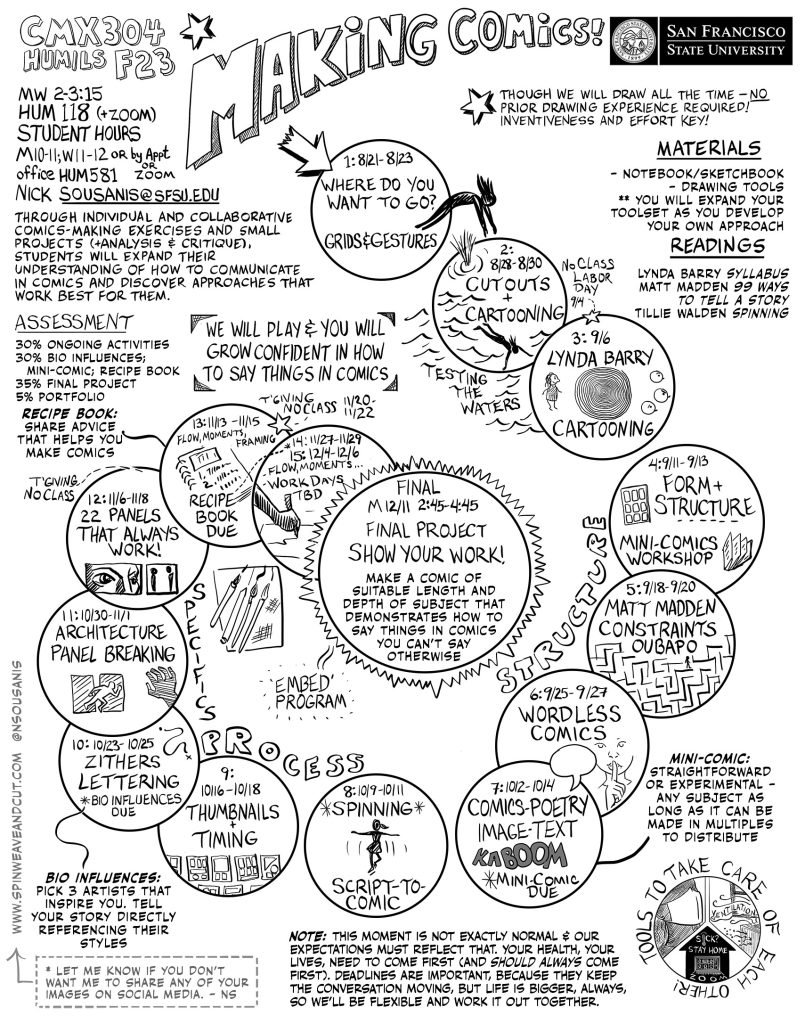 CMX304
HUMILS F23
MAKING COMICS!
SAN FRANCISCO
STATE UNIVERSITY
MW 2-3:15
HUM 118 (+ZOOM)
STUDENT HOURS
M10-11; W11-12 OR by Appt
OR ZOOM
office HUM 581
NICK SOUSANIS@SFSU.EDU
THOUGH WE WILL DRAW ALL THE TIME - NO
PRIOR DRAWING EXPERIENCE REQUIRED!
INVENTIVENESS AND EFFORT KEY!
MATERIALS
- NOTEBOOK/SKETCHBOOK
- DRAWING TOOLS
** YOU WILL EXPAND YOUR
TOOLSET AS YOU DEVELOP
YOUR OWN APPROACH
READINGS
LYNDA BARRY SYLLABUS
MATT MADDEN 99 WAYS
TO TELL A STORY
TILLIE WALDEN SPINNING
THROUGH INDIVIDUAL AND COLLABORATIVE
COMICS-MAKING EXERCISES AND SMALL
PROJECTS (+ANALYSIS & CRITIQUE),
STUDENTS WILL EXPAND THEIR
UNDERSTANDING OF HOW TO COMMUNICATE
IN COMICS AND DISCOVER APPROACHES THAT
WORK BEST FOR THEM.
ASSESSMENT
30% ONGOING ACTIVITIES
30% BIO INFLUENCES;
MINI-COMIC; RECIPE BOOK
35% FINAL PROJECT
5% PORTFOLIO
WE WILL PLAY & YOU WILL
GROW CONFIDENT IN HOW
TO SAY THINGS IN COMICS
1: 8/21-8/23
WHERE DO YOU
WANT TO GO?
GRIDS & GESTURES
2:
8/28-8/30
CUTOUTS
+
CARTOONING
TESTING
THE
WATERS
NO CLASS
LABOR
DAY
9/4
3: 9/6
LYNDA BARRY
CARTOONING
4: 9/11-9/13
FORM +
STRUCTURE
MINI-COMICS
WORKSHOP
5: 9/18-9/20
MATT MADDEN
CONSTRAINTS
OUBAPO
STRUCTURE
6: 9/25-9/27
WORDLESS
COMICS
7: 10/2-10/4
COMICS-POETRY
IMAGE-TEXT
KABOOM
*MINI-COMIC
DUE
MINI-COMIC:
STRAIGHTFORWARD
OR EXPERIMENTAL -
ANY SUBJECT AS
LONG AS IT CAN BE
MADE IN MULTIPLES
TO DISTRIBUTE
8: 10/9-10/11
*SPINNING*
SCRIPT-TO-
COMIC
PROCESS
9:
10/16-10/18
THUMBNAILS
+
TIMING
10: 10/23-10/25
ZITHERS
LETTERING
*BIO INFLUENCES
DUE
BIO INFLUENCES:
PICK 3 ARTISTS THAT
INSPIRE YOU. TELL
YOUR STORY DIRECTLY
REFERENCING THEIR
STYLES
SPECIFICS
11: 10/30-11/1
ARCHITECTURE
PANEL BREAKING
12: 11/6-11/8
22 PANELS
THAT ALWAYS
WORK!
T'GIVING
NO CLASS
RECIPE BOOK:
SHARE ADVICE
THAT HELPS YOU
MAKE COMICS
13: 11/13-11/15
FLOW, MOMENTS,
FRAMING
RECIPE
BOOK
DUE
T'GIVING
NO CLASS 11/20-
11/22
*14: 11/27-11/29
15: 12/4-12/6
FLOW, MOMENTS...
WORK DAYS
TBD
FINAL
M 12/11 2:45-4:45
FINAL PROJECT
SHOW YOUR WORK!
MAKE A COMIC OF
SUITABLE LENGTH AND
DEPTH OF SUBJECT THAT
DEMONSTRATES HOW TO
SAY THINGS IN COMICS
YOU CAN'T SAY
OTHERWISE
'EMBED'
PROGRAM
WWW.SPINWEAVEANDCUT.COM @NSOUSANIS
* LET ME KNOW IF YOU DON'T
WANT ME TO SHARE ANY OF YOUR
IMAGES ON SOCIAL MEDIA. - NS
NOTE: THIS MOMENT IS NOT EXACTLY NORMAL & OUR
EXPECTATIONS MUST REFLECT THAT. YOUR HEALTH, YOUR
LIVES, NEED TO COME FIRST (AND SHOULD ALWAYS COME
FIRST). DEADLINES ARE IMPORTANT, BECAUSE THEY KEEP
THE CONVERSATION MOVING, BUT LIFE IS BIGGER, ALWAYS,
SO WE'LL BE FLEXIBLE AND WORK IT OUT TOGETHER.
TOOLS TO TAKE CARE OF EACH OTHER!
VENTILATION
SICK?
STAY HOME
ZOOM